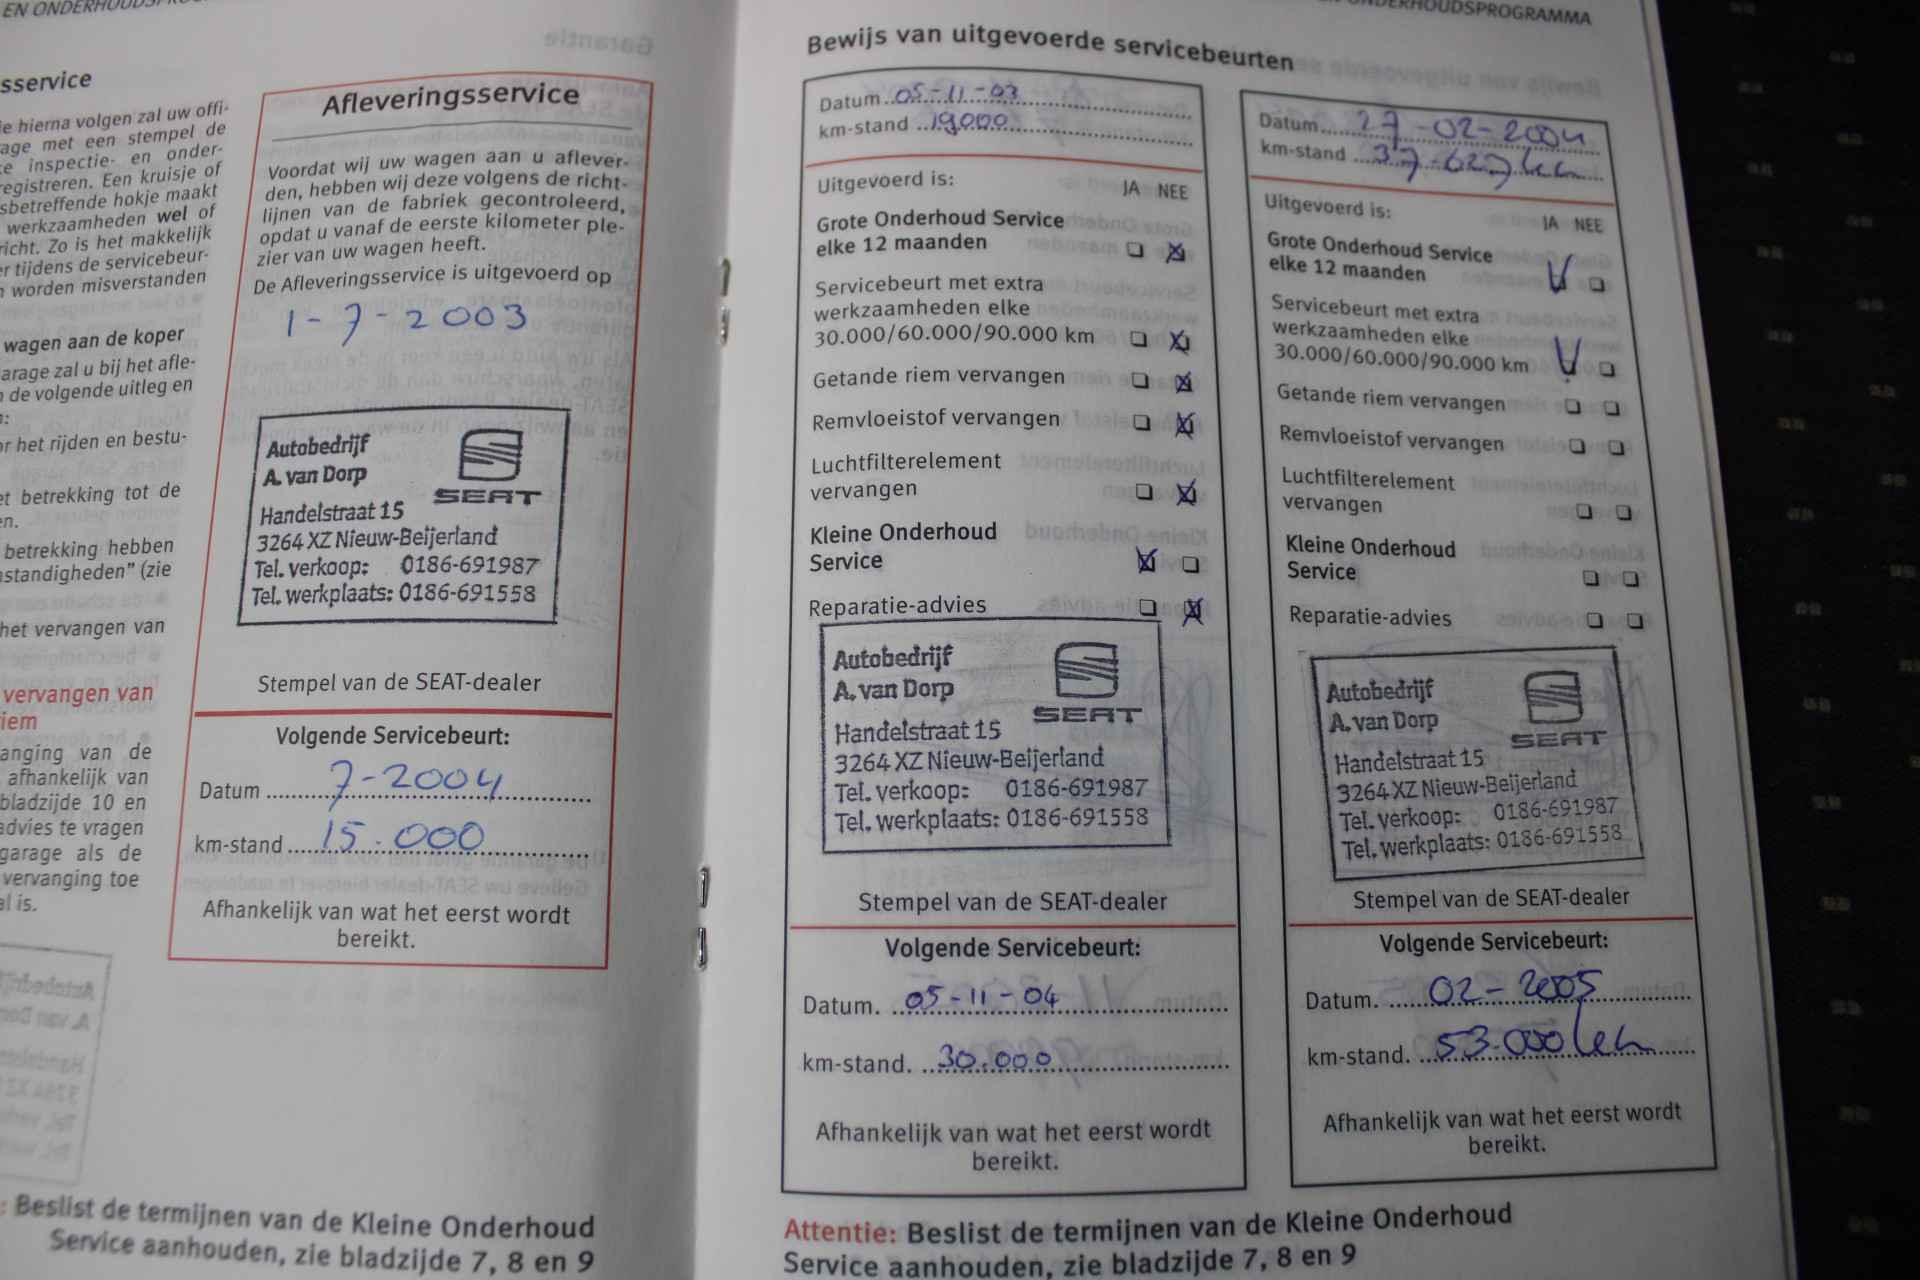 EN ONDERHOUDSPROGRAMMA
sservice
ie hierna volgen zal uw offi-
age met een stempel de
te inspectie- en onder-
registreren. Een kruisje of
sbetreffende hokje maakt
werkzaamheden wel of
richt. Zo is het makkelijk
er tijdens de servicebeur-
n worden misverstanden
wagen aan de koper
arage zal u bij het afle-
n de volgende uitleg en
n:
or het rijden en bestu-
et betrekking tot de
en.
betrekking hebben
nstandigheden" (zie
het vervangen van
vervangen van
riem
anging van de
afhankelijk van
bladzijde 10 en
advies te vragen
garage als de
vervanging toe
al is.
Afleveringsservice
Voordat wij uw wagen aan u aflever-
den, hebben wij deze volgens de richt-
lijnen van de fabriek gecontroleerd,
opdat u vanaf de eerste kilometer ple-
zier van uw wagen heeft.
De Afleveringsservice is uitgevoerd op
1-7-2003
Autobedrijf
A. van Dorp
SEAT
Handelstraat 15
3264 XZ Nieuw-Beijerland
Tel. verkoop: 0186-691987
Tel. werkplaats: 0186-691558
Stempel van de SEAT-dealer
Volgende Servicebeurt:
Datum 7-2004
km-stand 15.000
Afhankelijk van wat het eerst wordt
bereikt.
: Beslist de termijnen van de Kleine Onderhoud
Service aanhouden, zie bladzijde 7, 8 en 9
EN ONDERHOUDSPROGRAMMA
Bewijs van uitgevoerde servicebeurten
Datum 05-11-03
km-stand 19000
Uitgevoerd is: JA NEE
Grote Onderhoud Service
elke 12 maanden
Servicebeurt met extra
werkzaamheden elke
30.000/60.000/90.000 km
Getande riem vervangen
Remvloeistof vervangen
Luchtfilterelement
vervangen
Kleine Onderhoud
Service
Reparatie-advies
Autobedrijf
A. van Dorp
SEAT
Handelstraat 15
3264 XZ Nieuw-Beijerland
Tel. verkoop: 0186-691987
Tel. werkplaats: 0186-691558
Stempel van de SEAT-dealer
Volgende Servicebeurt:
Datum. 05-11-04
km-stand. 30.000
Afhankelijk van wat het eerst wordt
bereikt.
Datum 27-02-2004
km-stand 37-627 km
Uitgevoerd is: JA NEE
Grote Onderhoud Service
elke 12 maanden
Servicebeurt met extra
werkzaamheden elke
30.000/60.000/90.000 km
Getande riem vervangen
Remvloeistof vervangen
Luchtfilterelement
vervangen
Kleine Onderhoud
Service
Reparatie-advies
Autobedrijf
A. van Dorp
SEAT
Handelstraat 15
3264 XZ Nieuw-Beijerland
Tel. verkoop: 0186-691987
Tel. werkplaats: 0186-691558
Stempel van de SEAT-dealer
Volgende Servicebeurt:
Datum. 02-2005
km-stand. 53.000 km
Afhankelijk van wat het eerst wordt
bereikt.
Attentie: Beslist de termijnen van de Kleine Onderhoud
Service aanhouden, zie bladzijde 7, 8 en 9